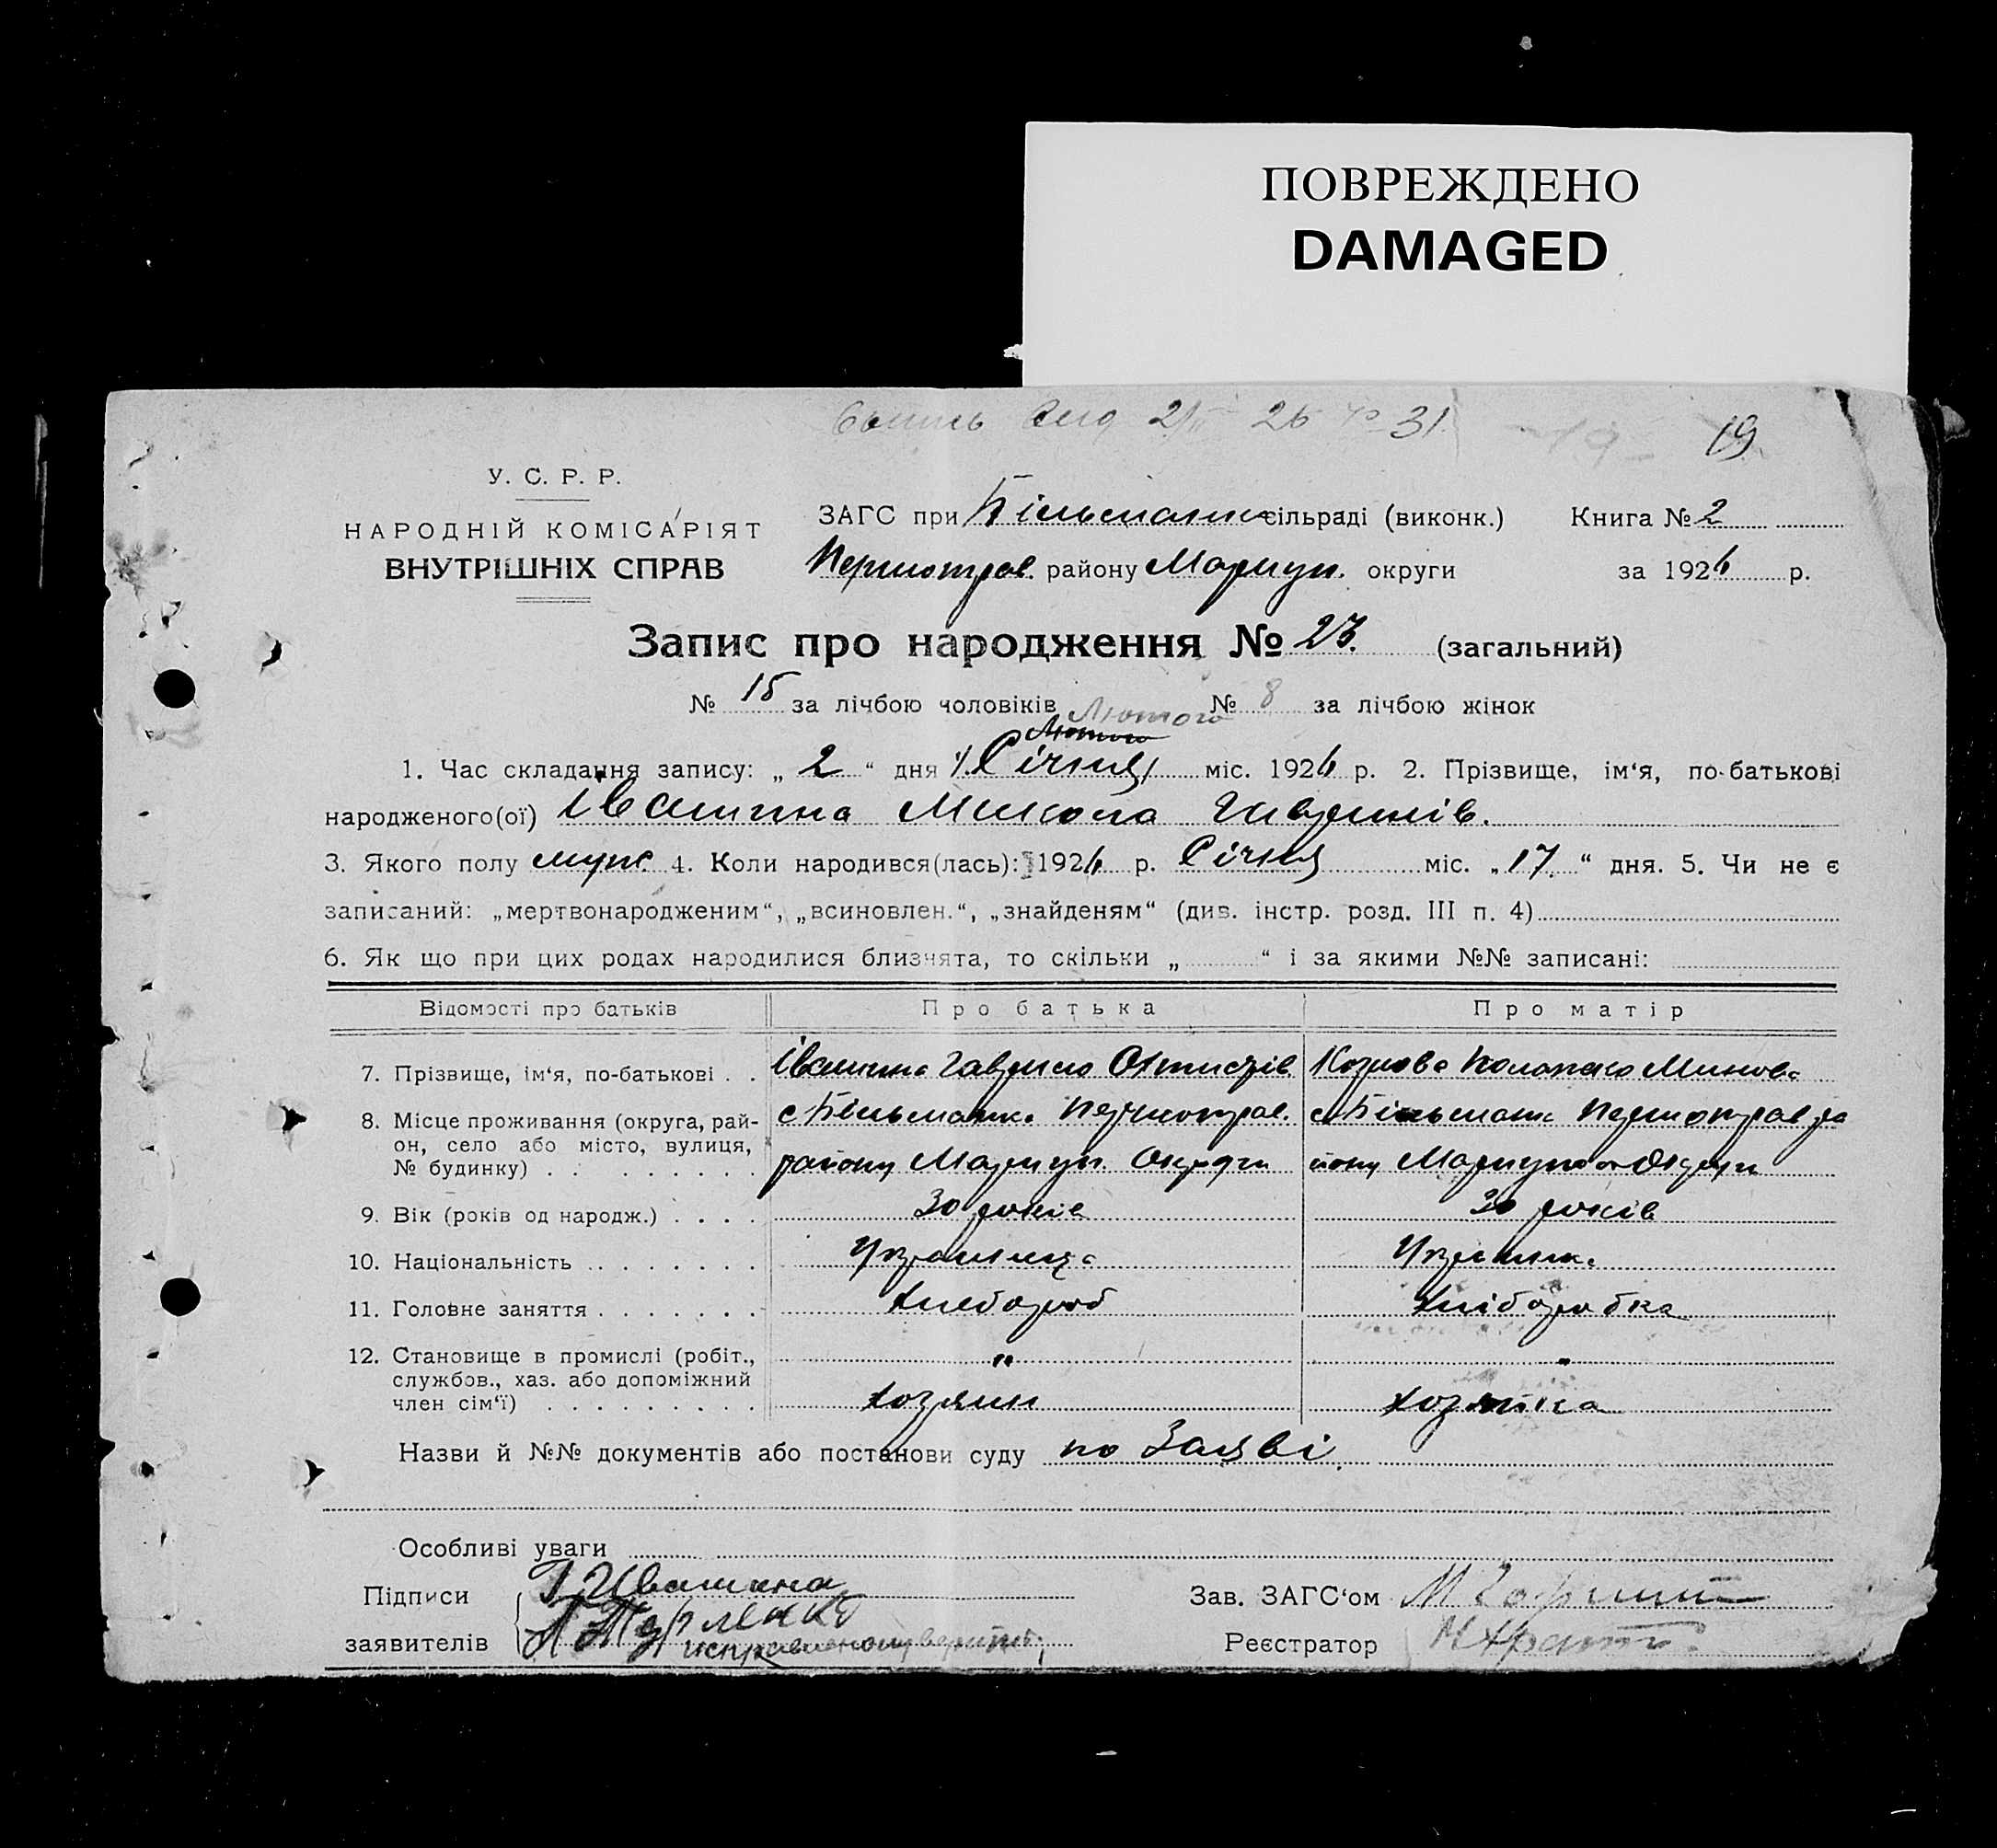 ПОВРЕЖДЕНО
DAMAGED
19
У. С. Р. Р.
НАРОДНІЙ КОМІСАРІЯТ
ВНУТРІШНІХ СПРАВ
ЗАГС при Більманк сільраді (виконк.) Книга № 2
Першотрав. району Мариуп. округи за 1926 р.
Запис про народження № 23. (загальний)
№ 15 за лічбою чоловіків № 8 за лічбою жінок
Лютого
Лютого
1. Час складання запису: „ 2 “ дня Січня міс. 1926 р. 2. Прізвище, ім‘я, по-батькові
народженого(ої) Івашина Микола Гаврилів.
3. Якого полу муж. 4. Коли народився(лась): 1926 р. Січня міс. „ 17. “ дня. 5. Чи не є
записаний: „мертвонародженим“, „всиновлен.“, „знайденям“ (див. інстр. розд. III п. 4)
6. Як що при цих родах народилися близнята, то скільки „ “ і за якими №№ записані:
Відомості про батьків Про батька Про матір
7. Прізвище, ім‘я, по-батькові . . Івашина Гаврило Минова
8. Місце проживання (округа, рай-
он, село або місто, вулиця,
№ будинку) . . . . . . . .
с Більманка Першотрав.
району Мариуп. Округи
с Більманк Першотрав ра
йону Округи
9. Вік (років од народж.) . . . . 30 років 30 років
10. Національність . . . . . . . . Украинец Украинка
11. Головне заняття . . . . . . . Хлебороб Хліборобка
12. Становище в промислі (робіт.,
службов., хаз. або допоміжний
член сім‘ї) . . . . . . . . .
" "
хозяин хозяйка
Назви й №№ документів або постанови суду по Заяві.
Особливі уваги
Підписи
заявителів
Г Ивашина
исправленому верить
Зав. ЗАГС‘ом
Реєстратор